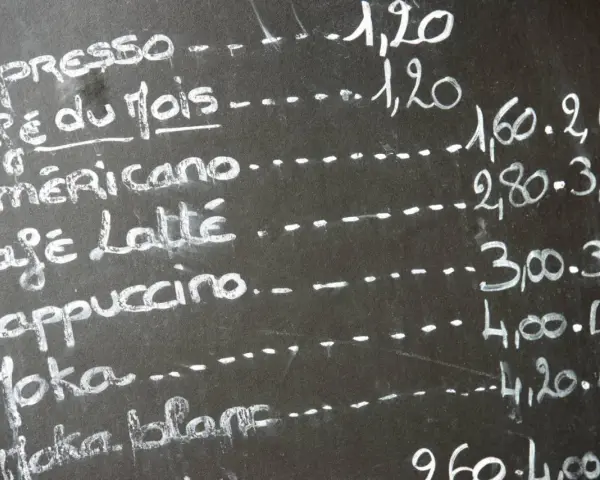 PRESSO 1,20
é du Mois 1,20
MÉRICANO 1,60 . 2,
afé Latté 2,80 . 3,
appuccino 3,00 . 3
Moka 4,00 . 4
Moka blanc 4,20 .
960 . 4,00